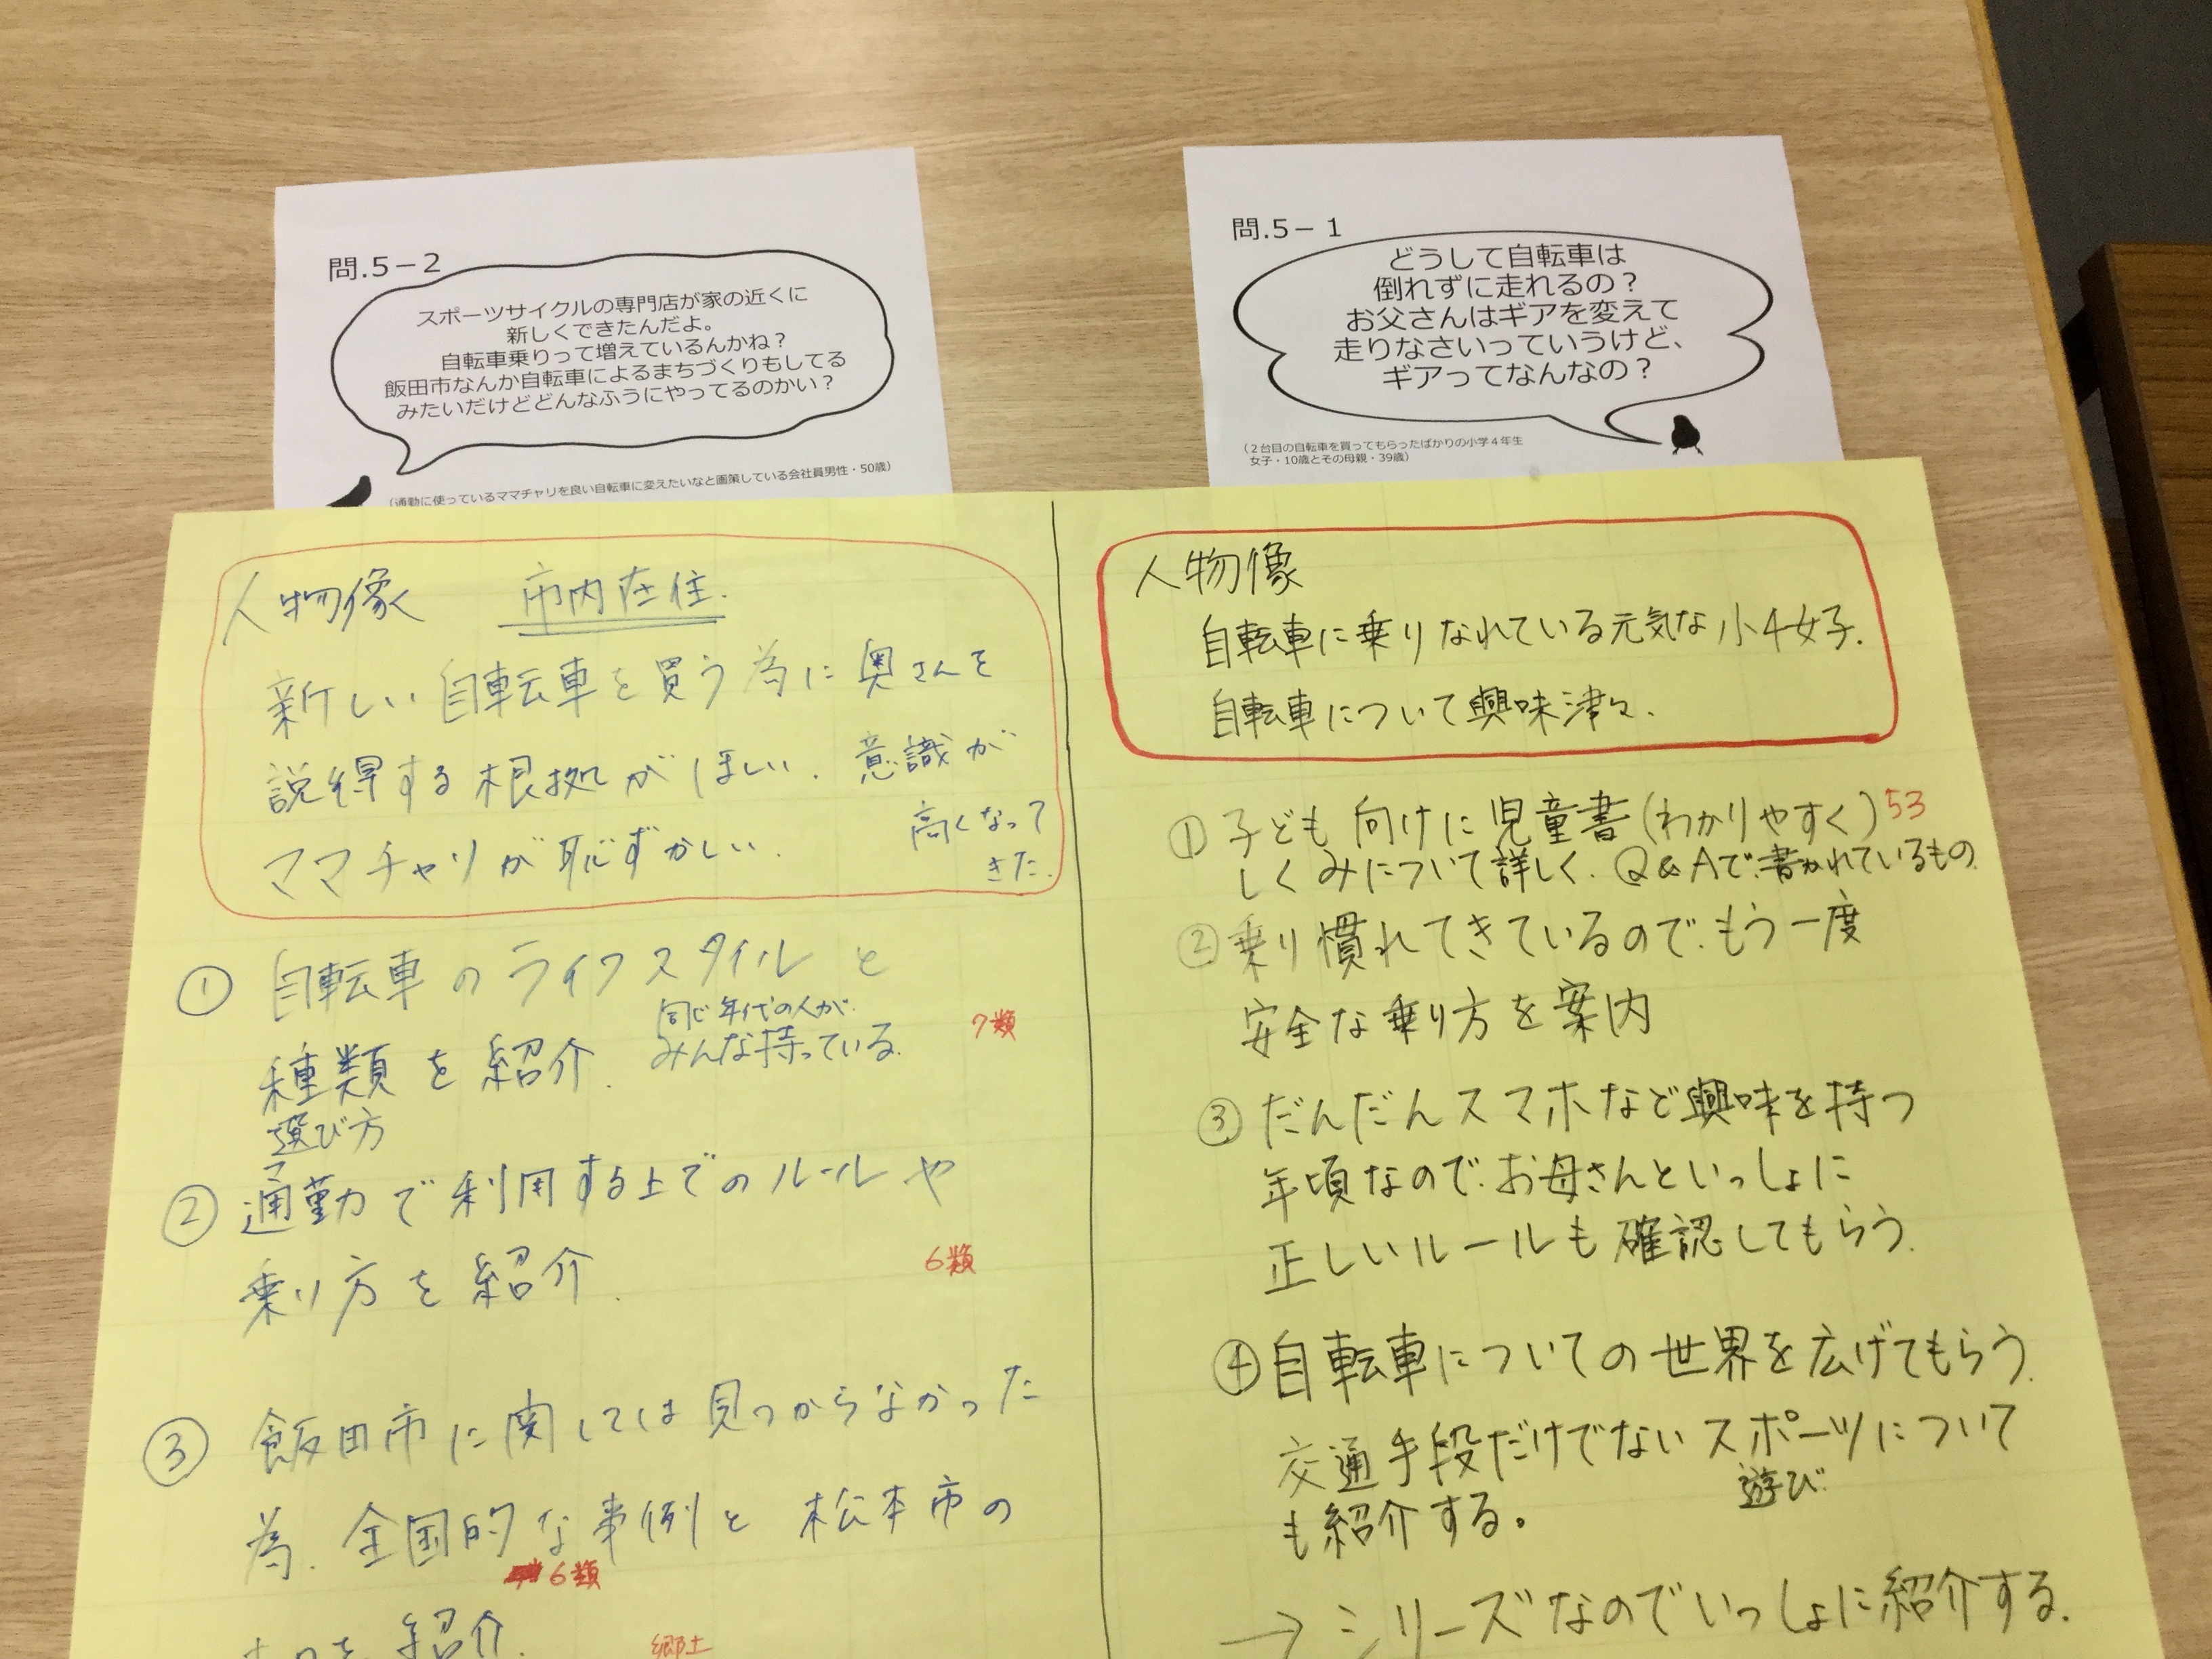 問.5－2
スポーツサイクルの専門店が家の近くに
新しくできたんだよ。
自転車乗りって増えているんかね？
飯田市なんか自転車によるまちづくりもしてる
みたいだけどどんなふうにやってるのかい？
（通勤に使っているママチャリを良い自転車に変えたいなと画策している会社員男性・50歳）
問.5－1
どうして自転車は
倒れずに走れるの？
お父さんはギアを変えて
走りなさいっていうけど、
ギアってなんなの？
（２台目の自転車を買ってもらったばかりの小学４年生
女子・10歳とその母親・39歳）
人物像 市内在住.
新しい自転車を買う為に奥さんを
説得する根拠がほしい. 意識が
高くなって
きた.
ママチャリが恥ずかしい.
① 自転車のライフスタイルと
同じ年代の人が
みんな持っている.
種類を紹介.
7類
選び方
② 通勤で利用する上でのルールや
乗り方を紹介.
6類
③ 飯田市に関しては見つからなかった
為. 全国的な事例と松本市の
6類
を紹介.
郷土
人物像
自転車に乗りなれている元気な小4女子.
自転車について興味津々.
① 子ども向けに児童書(わかりやすく) 53
しくみについて詳しく. Q&Aで書かれているもの
② 乗り慣れてきているので.もう一度
安全な乗り方を案内
③ だんだんスマホなど興味を持つ
年頃なので.お母さんといっしょに
正しいルールも確認してもらう.
④ 自転車についての世界を広げてもらう.
交通手段だけでないスポーツについて
遊び.
も紹介する。
→ シリーズなのでいっしょに紹介する.